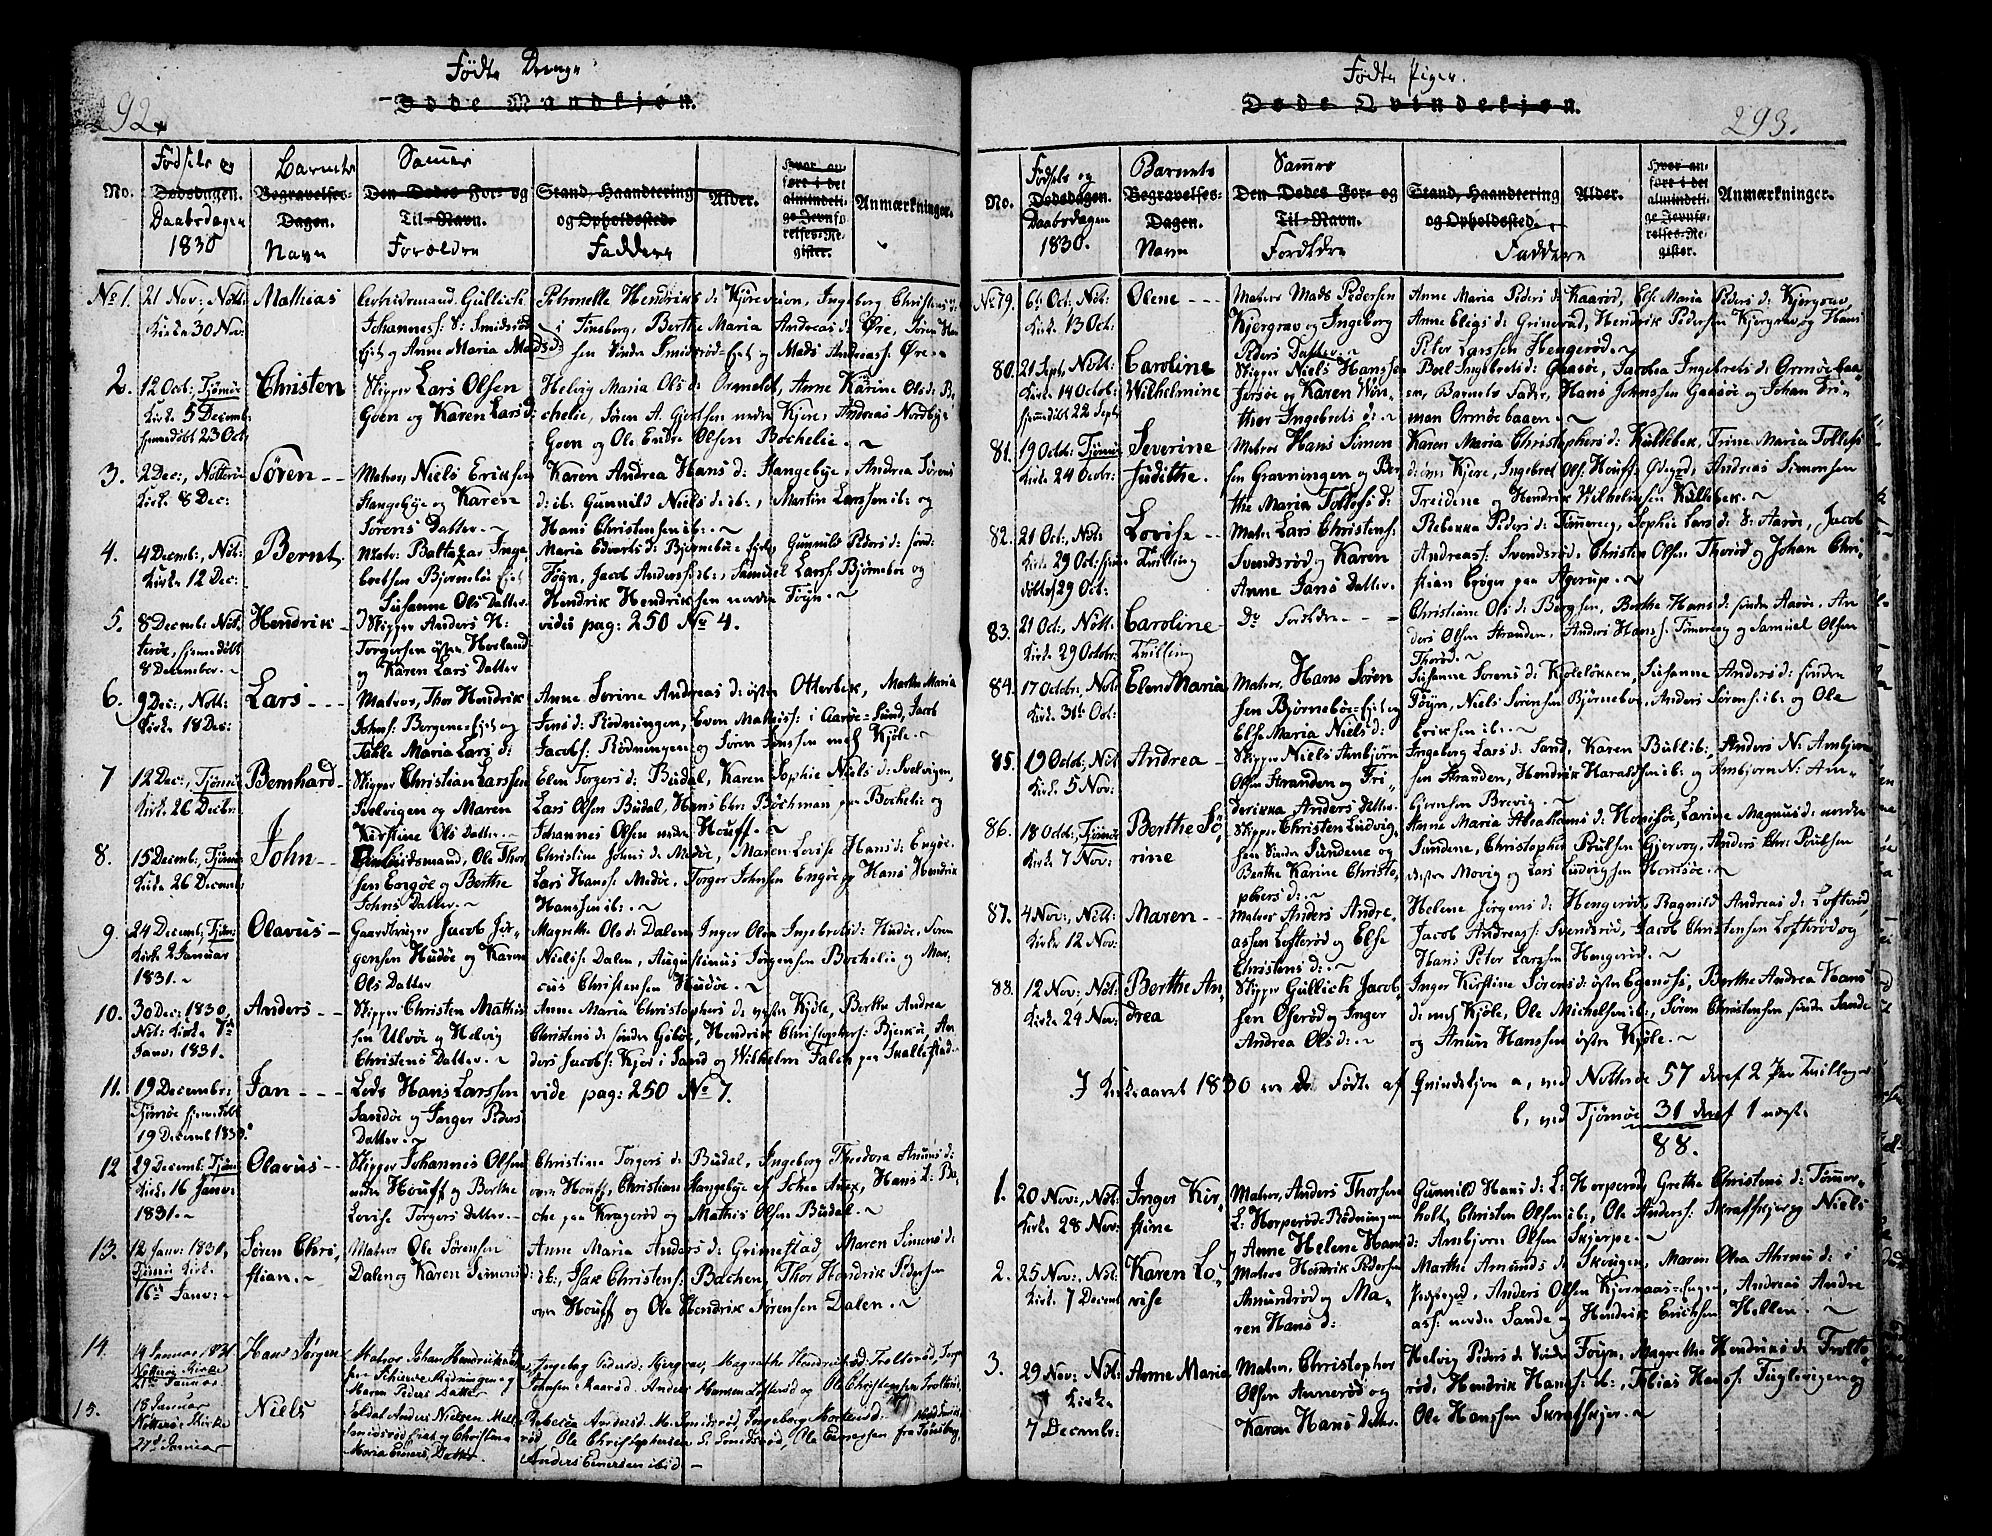 292.
Fødte Drenge
Døde Mandkjøn.
No.
Fødsels og
Dødsdagen.
Daabsdagen
1830
Barnets
Begravelses-
Dagen.
Navn
Sammes
Den Dødes For- og
Til-Navn.
Forældre
Stand, Haandtering
og Opholdssted.
Faddere
Alder.
Hvor an-
ført i det
almindeli-
ge Jevnfø-
relses-Re-
gister.
Anmærkninger.
No 1. 21 Nov:, Nött:
Kirke 30 Nov:
Mathias
Arbeidsmand Gullich
Johannesf: S: Smidsrød
Ejet og Anne Maria Mads d:
Petronelle Hendriks d: Kjøreveien, Ingeborg Christens d:
i Tönsberg, Berthe Maria Andreas d: Øre, Søren Han
sen Søndre Smidsrød-Ejet og Mads Andreasf: Øre
2. 12 Oct:, Tjømøe
Kirk. 5 Decemb:
hjemmedöbt 23 Oct:
Christen
Skipper Lars Olsen
Goen og Karen Lars d:
Helvig Maria Ols d: Ormelet, Anne Karine Ols d: Bo
chelie, Søren A. Gjertsen nedre Kjere, Andreas Nordbye
Goen og Ole Endre Olsen Bochelie. ~
3. 2 Dec:, Notterøe
Kirk. 8 Dec:
Sören
Matros, Niels Eriksen
Hangebye og Karen
Sørens Datter. ~
Karen Andrea Hans d: Hangebye, Andrea Sørens
d: ib: Gunnild Niels d: ib:, Martin Larssen ib: og
Hans Christensen ib: ~
4. 4 Decemb:, Nöt:
Kirk. 12 Dec:
Bernt
Matr: Baltzar Inge
bretsen Bjørnebøe Ejet
Susanne Ols Datter
Maria Edvarts d: Bjørnebøe-Ejet, Gunnild Peders d: sønd:
Føyn, Jacob Andersf: ib:, Samuel Larsf: Bjørneboe og
Hendrik Hendriksen nordre Føyn. ~
5. 8 Decemb: Nöt
terøe, hjemmedöbt
8 December. ~
Hendrik
Skipper Anders N:
Torgersen østre Hovland
og Karen Lars Datter
vides pag: 250 No 4.
6. 9 Dec:, Nott:
Kirk. 18 Dec:
Lars
Matros, Thor Hendrik
Johnsf: Borgene-Ejet og
Tahle Maria Lars d:
Anne Sorine Andreas d: østre Otterbek, Marthe Maria
Jens d: Rödningen, Even Mathisf: i Aaröe-Sund, Jacob
Jacobsf: Rödningen og Søren Jenssen mel: Kjöle. ~
7 12 Dec:, Tjømøe
Kirk. 26 Decbr:
Bernhard
Skipper Christian Larssen
Sölvigen og Maren
Kirstine Ols Datter. ~
Elen Torgers d: Budal, Karen Sophie Niels d: Sølvigen,
Lars Olsen Budal, Hans Chr: Böchman paa Bochelie og
Johannes Olsen nedre Houff. ~
8. 15 Decemb:, Tjømøe
Kirke 26 Decemb:
John
Arbeidsmand, Ole Thor
sen Engöe og Berthe
Johns Datter. ~
Christine Johns d: Medöe, Maren Lovise Hans d: Engöe,
Lars Hansf: Medöe, Torger Johnsen Engöe og Hans Hendrik
Hanssen ib: ~
9. 24 Decemb; Tjøm:
Kirk 2 Januar
1831. ~
Olavus
Gaardbruger Jacob Jör-
gensen Hudöe og Karen
Ols Datter
Magrethe Ols d: Dalen, Inger Olea Ingebrets d: Hudöe, Søren
Nielsf: Dalen, Augustinus Jørgensen Bochelie og Mar-
cus Christensen Hudöe. ~
10. 30 Dec: 1830,
Nöt: Kirke 7de
Janv: 1831.
Anders
Skipper Christen Mathis
sen Ulvöe og Helvig
Christens Datter. ~
Anne Maria Christophers d: vestre Kjöle, Berthe Andrea
Christens d: søndre Gipöe, Hendrik Christophersf: Bjerköe, An
ders Jacobsf: Kjær i Sand og Wilhelm Falch paa Snallestad.
11. 19 Decembr:
Tjømøe hjem: Döbt
19 Decemb 1830.
Jan
Lods Hans Larssen
Sandöe og Inger Peders
Datter. ~
vide pag: 250 No 7.
12 29 Decemb: Tjøm:
Kirk. 16 Janv:
1831. ~
Olavus
Skipper Johannes Olsen
nedre Houff og Berthe
Lovise Torgers Datter. ~
Christine Torgers d: Budal, Ingeborg Theodora Anuns d:
øvre Houff, Christian Hangebye, Hans L: Ba-
che paa Kragerød og Mathis Olsen Budal. ~
13. 12 Janv: 1831,
Tjømøe Kirk.
16de Janv: ~
Søren Chri-
stian. ~
Matros Ole Sørensen
Dalen og Karen Simons d:
Anne Maria Anders d: Grimestad, Maren Simons d:
ib:, Isak Christensf: Bachen, Thor Hendrik Pedersen
øvre Houff og Ole Hendrik Sørensen Dalen. ~
14. 4 Januar 1831
Notterøe Kirke
21de Januar
Hans Jørgen
Matros Johan Hendrik
Rödningen og
Maren Peders Datter
Ingeborg Peders d: Kjergrav, Magrethe Hendriks d: Trolterød, Jørgen
Johnsen Kaarød, Anders Hansen Lofterød og Ole Christensen Trolterød
15. 18 Januar
Nötterøe Kirke
27de Januar
Niels
Anders Nielsen Mell:
Smidsrød Ejet og Christina
Maria Einers Datter.
Rebecca Anders d: M. Smidsrød, Ingeborg
Ole Christophersen S: Smidsrød, Ole Einersen fra Tønsberg,
Anders Einersen ibid ~
293.
Fødte Piger.
Døde Qvindekjøn.
No.
Fødsels og
Dødsdagen.
Daabsdagen
1830.
Barnets
Begravelses-
Dagen.
Navn
Sammes
Den Dødes For- og
Til-Navn.
Forældre
Stand, Haandtering
og Opholdssted.
Faddere
Alder.
Hvor an-
ført i det
almindeli-
ge Jevnfø-
relses-Re-
gister.
Anmærkninger.
No 79. 6te Oct: Nöt:
Kirk 13 Oct:
Olene
Matros Mads Pedersen
Kjergrav og Ingeborg
Peders Datter. ~
Anne Maria Peders d: Kaarød, Else Maria Peders d: Kjergrav,
Anne Elias d: Grinerød, Hendrik Pedersen Kjergrav og Hans
Peter Larssen Hengerød. ~
80. 21 Sept, Nött:
Kirke 14 Octob:
hjemmedöbt 22 Septr
Caroline
Wilhelmine
Skipper Niels Hanssen
Jersöe og Karen Win-
ther Ingebrets d: ~
Boel Ingebrets d: Gaasöe, Jacobea Ingebrets d: Ormöebaa-
en, Barnets Fader, Hans Johnssen Gaasöe og Johan Fri-
man Ormöebaaen. ~
81. 19 Octob: Tjømøe
Kirk. 24 Octobr:
Severine
Judithe.
Matros Hans Simon
sen Gravningen og Ber
the Maria Tollefs d:
Karen Maria Christophers d: Kullebek, Trine Maria Tollefs
d: im: Kjere, Ingebret Olsf: Houff-Ødegrd, Andreas Simonsen
Treidene og Hendrik Wilhelmsen Kullebek. ~
82. 21 Oct:, Nöt:
Kirk. 29 Oct: hjem
döbt 29 Oct:
Lovise
Tvilling
Matr: Lars Christensf:
Svendsrød og Karen
Anne Jans Datter
Rebekka Peders d: Tömmerøe, Sophie Lars d: S: Aaröe, Jacob
Andreasf: Svendsrød, Christen Olsen Thorød og Johan Chri-
stian Crøger paa Agerup. ~
83. 21 Oct:, Nött:
Kirk. 29 Octobr:
Caroline
Tvilling
Do Forældre
Christiane Ols d: Bergsen, Berthe Hans d: søndre Aaröe, An
ders Olsen Stranden, Anders Hansf: Tömmerøe og Samuel Olsen
Thorød. ~
84. 17 Octobr:, Nöt:
Kirk. 31te Oct:
Elen Maria
Matros, Hans Sören
sen Bjørneböe-Ejet og
Else Maria Niels d:
Susanne Sørens d: Kjøleløkken, Susanne Anders d: søndre
Föyn, Niels Sørensen Bjørneboe, Anders Sørensf: ib: og Ole
Eriksen ib: ~
85. 19 Octb:, Nöt
Kirk. 5 Nov:
Andrea
Skipper Niels Ambjörn
Olsen Stranden og Fri-
derikka Anders Datter
Ingeborg Lars d: Sand, Karen Bull ib:, Anders N: Ambjörn
sen Stranden, Hendrik Haraldsen ib: og Ambjørn N: Am-
bjørnsen Brevig. ~
86. 18 Octb:, Tjømøe
Kirk. 7 Nov:
Berthe Sö-
rine
Skipper Christen Ludvig-
sen Søndre Sundene og
Berthe Karine Christo-
phers d: ~
Anne Maria Abrahams d: Honsöe, Larine Magnus d: nordre
Sundene, Christopher Poulsen Gjervog, Anders Chr: Poulsen
vestre Mövig og Lars Ludvigsen Honsöe. ~
87. 4 Nov:, Nött:
Kirk. 12 Nov:
Maren
Matros Anders Andre-
assen Lofterød og Else
Christens d: ~
Helene Jørgens d: Hengerød, Ragnild Andreas d: Lofterød,
Jacob Andreasf: Svendsrød, Jacob Christensen Lofterød og
Hans Peter Larssen Hengerød. ~
88. 12 Nov:, Nöt:
Kirk. 24 Nov:
Berthe An-
drea
Skipper Gullich Jacob-
sen Oserød og Inger
Andrea Ols d: ~
Inger Kirstine Sørens d: østre Egenæs, Berthe Andrea Hans
d: mel: Kjöle, Ole Michelsen ib:, Søren Christensen søndre Sande
og Anun Hanssen østre Kjöle. ~
I Kirkeaaret 1830 ere da Födte af Qvindekjön a, ved Notterøe 57 deraf 2 Par Tvillinger
b, ved Tjømøe 31 deraf 1 uægte
88.
1. 20 Nov:, Nöt:
Kirk. 28 Nov:
Inger Kir-
stine
Matros, Anders Thorsen
L: Horperød-Rødningen
og Anne Helene Hans d:
Gunnild Hans d: L: Horperød, Grethe Christens d: Tömmer-
holt, Christen Olsen ib:, Ole Andersf: Skrafskjer og Niels
Ambjörn Olsen Skjerpe. ~
2. 25 Nov:, Nöt:
Kirk. 7 Decemb:
Karen Lo-
vise
Matros Hendrik Pedersen
Amundrød og Ma-
ren Hans d:
Marthe Amunds d: Skougen, Maren Olea Ahrens d: i
Anders Olsen Kjernaas-Hagen, Andreas Andre
asf: nordre Sande og Hendrik Erichsen Hellen. ~
3. 29 Nov: Nöt:
Kirke
7 Decembr:
Anne Maria
Matros, Christopher
Olsen Annerød og
Karen Hans Datter
Helvig Peders d: Söndre Föyn, Magrethe Hendriks d: Trolte-
rød, Hendrik Hansf: ib:, Tobias Hansf: Fuglevigen og
Ole Hanssen Skrafskjer. ~